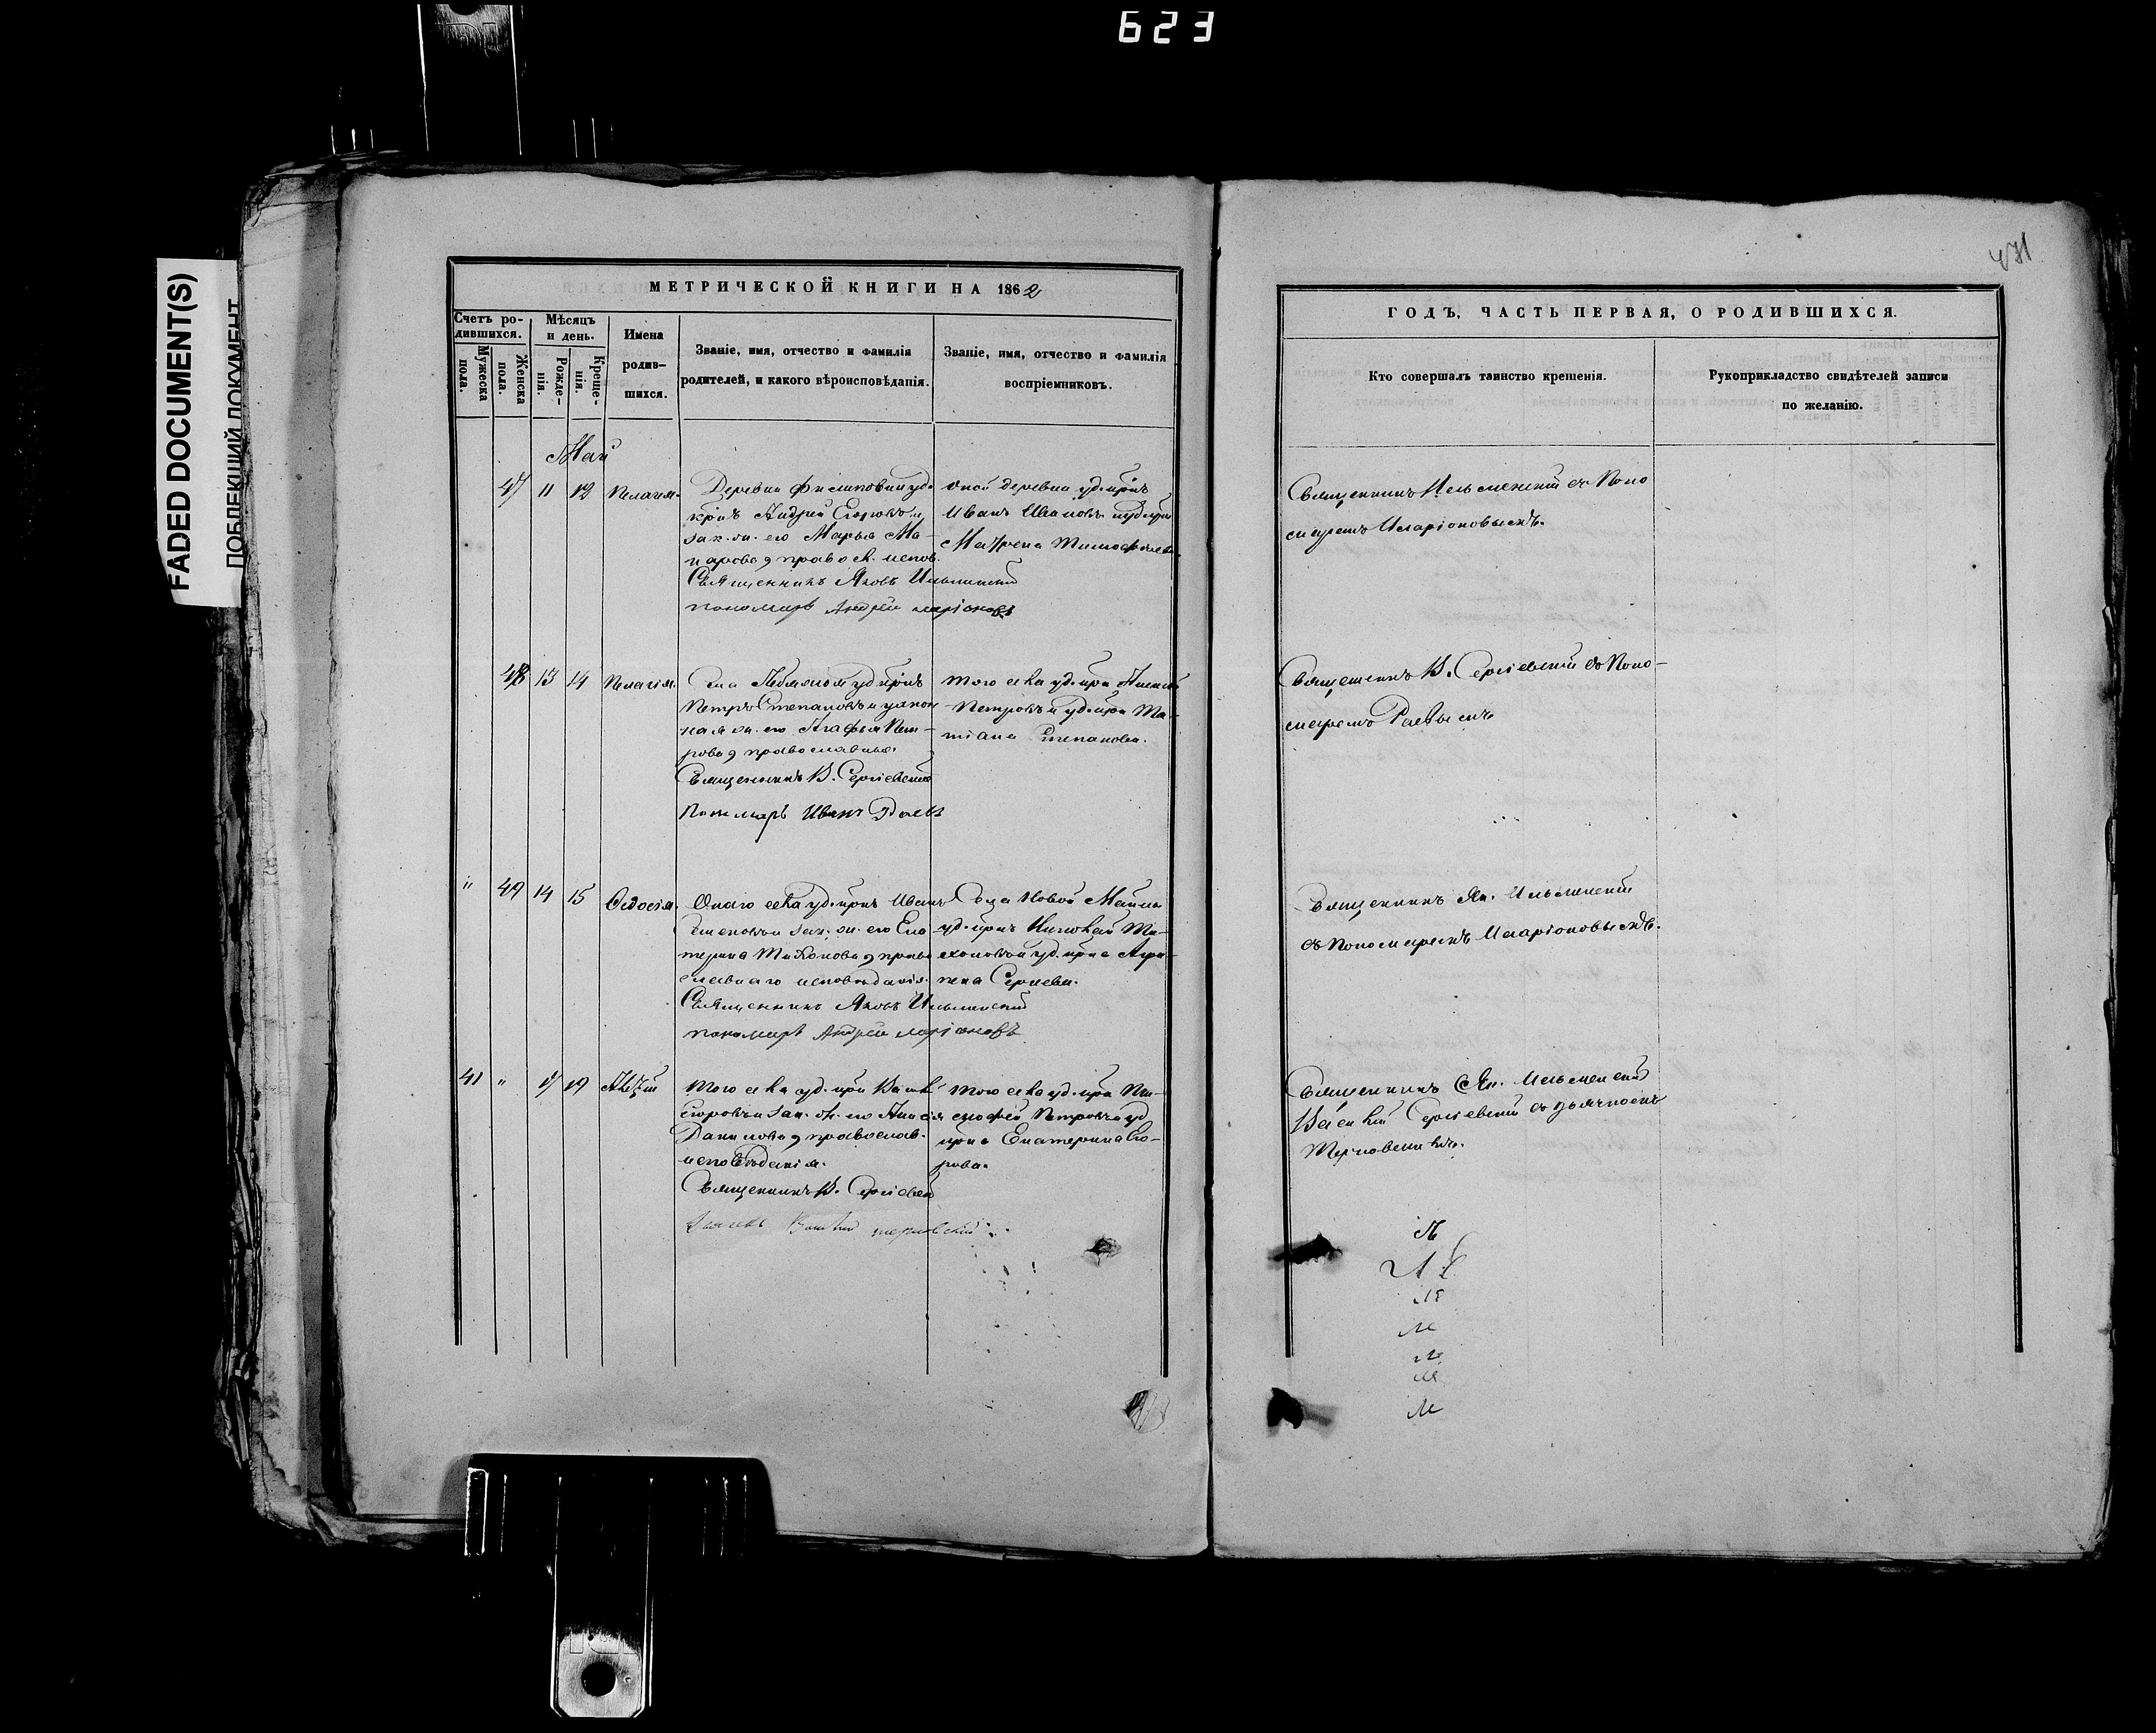 623
FADED DOCUMENT(S)
ПОБЛЕКШИЙ ДОКУМЕНТ
МЕТРИЧЕСКОЙ КНИГИ НА 1862
Счетъ ро-
дившихся.
Мужеска
пола.
Женска
пола.
Мѣсяцъ
и день.
Рожде-
нія.
Креще-
нія.
Имена
родив-
шихся.
Званіе, имя, отчество и фамилія
родителей, и какого вѣроисповѣданія.
Званіе, имя, отчество и фамилія
воспріемниковъ.
Май
47 11 12 Пелагія.
Деревни уд.
кр̃нъ Андрей Егоровъ и
зак. ж. его Марья Ма-
карова, правосл. испов.
Священникъ Яковъ Ильминскій
пономарь Андрей
оной деревни уд. кр̃нъ
Иванъ Ивановъ
Матрена Тимофеева
48 13 14 Пелагія.
Села уд. кр̃нъ
Петръ Степановъ и закон
ная ж. его Агафья Пет-
рова, православные.
Священникъ В. Сергіевскій
Пономарь Иванъ Раевъ
того села уд. кр̃нъ Алексѣй
Петровъ и уд. кр̃на Та-
тіана Степанова.
" 49 14 15 Ѳедосія.
Онаго села уд. кр̃нъ Иванъ
Семеновъ и зак. ж. его Ека
терина Тихонова, право
славнаго исповѣданія.
Священникъ Яковъ Ильминскій
пономарь Андрей
Села Новой Майны
уд. кр̃нъ Николай Ти-
хоновъ и уд. кр̃на Агри-
пена Сергеева.
41 " 17 19
того села уд. кр̃нъ Василій
Егоровъ и зак. ж. его Анисія
Данилова, православ.
исповѣданія.
Священникъ В. Сергіевскій
Василій
того села уд. кр̃нъ Ти-
мофей Петровъ и уд
кр̃на Екатерина Его-
рова.
ГОДЪ, ЧАСТЬ ПЕРВАЯ, О РОДИВШИХСЯ.
Кто совершалъ таинство крещенія.
Рукоприкладство свидѣтелей записи
по желанію.
Священникъ Ильминскій съ Поно
маремъ Иларіоновымъ.
Священникъ В. Сергіевскій съ Поно-
маремъ Раевымъ
Священникъ Як. Ильминскій
съ Пономаремъ Иларіоновымъ.
Священникъ Як. Ильминскій
Василій Сергіевскій съ дьячкомъ